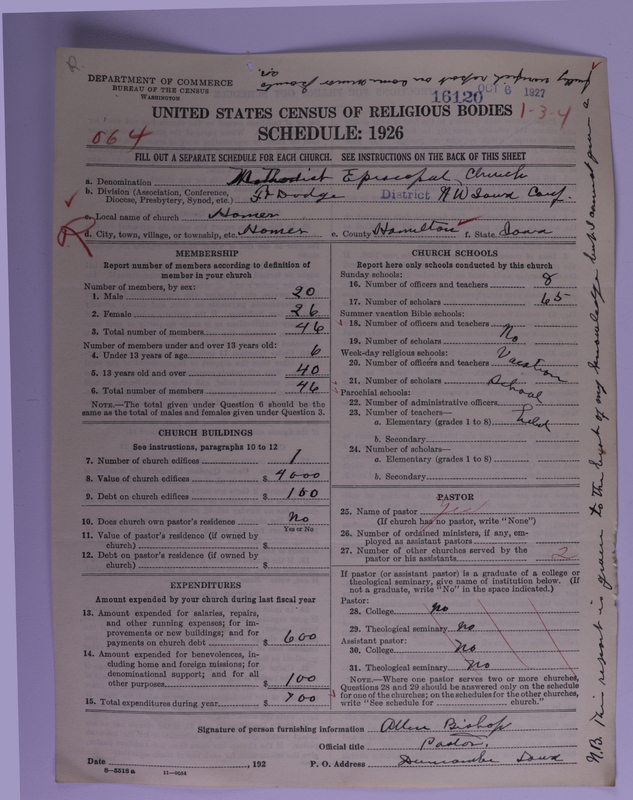 R.
DEPARTMENT OF COMMERCE
BUREAU OF THE CENSUS
WASHINGTON
16120 OCT 6 1927
1-3-4
UNITED STATES CENSUS OF RELIGIOUS BODIES
064
SCHEDULE: 1926
FILL OUT A SEPARATE SCHEDULE FOR EACH CHURCH. SEE INSTRUCTIONS ON THE BACK OF THIS SHEET
a. Denomination Methodist Episcopal Church
b. Division (Association, Conference, Diocese, Presbytery, Synod, etc.) Ft Dodge District N W Iowa Conf.
c. Local name of church Homer
d. City, town, village, or township, etc. Homer e. County Hamilton f. State Iowa
MEMBERSHIP
Report number of members according to definition of
member in your church
Number of members, by sex:
1. Male 20
2. Female 26
3. Total number of members 46
Number of members under and over 13 years old:
4. Under 13 years of age 6
5. 13 years old and over 40
6. Total number of members 46
NOTE.—The total given under Question 6 should be the
same as the total of males and females given under Question 3.
CHURCH BUILDINGS
See instructions, paragraphs 10 to 12
7. Number of church edifices 1
8. Value of church edifices $ 4000
9. Debt on church edifices $ 100
10. Does church own pastor's residence No
Yes or No
11. Value of pastor's residence (if owned by
church) $
12. Debt on pastor's residence (if owned by
church) $
EXPENDITURES
Amount expended by your church during last fiscal year
13. Amount expended for salaries, repairs,
and other running expenses; for im-
provements or new buildings; and for
payments on church debt $ 600
14. Amount expended for benevolences, in-
cluding home and foreign missions; for
denominational support; and for all
other purposes $ 100
15. Total expenditures during year $ 700
CHURCH SCHOOLS
Report here only schools conducted by this church
Sunday schools:
16. Number of officers and teachers 8
17. Number of scholars 65
Summer vacation Bible schools:
18. Number of officers and teachers No
19. Number of scholars
Week-day religious schools: Vacation
20. Number of officers and teachers
21. Number of scholars School
Parochial schools:
22. Number of administrative officers
23. Number of teachers— held
a. Elementary (grades 1 to 8)
b. Secondary
24. Number of scholars—
a. Elementary (grades 1 to 8)
b. Secondary
PASTOR
25. Name of pastor
(If church has no pastor, write "None")
26. Number of ordained ministers, if any, em-
ployed as assistant pastors
27. Number of other churches served by the
pastor or his assistants 2
If pastor (or assistant pastor) is a graduate of a college or
theological seminary, give name of institution below. (If
not a graduate, write "No" in the space indicated.)
Pastor:
28. College No
29. Theological seminary No
Assistant pastor:
30. College No
31. Theological seminary No
NOTE.—Where one pastor serves two or more churches,
Questions 28 and 29 should be answered only on the schedule
for one of the churches; on the schedules for the other churches,
write "See schedule for church."
Signature of person furnishing information Allen Bishop
Official title Pastor.
Date , 192 P. O. Address Duncombe Iowa
6—5516 a 11—9554
N.B. This report is given to the best of my knowledge but I cannot give a